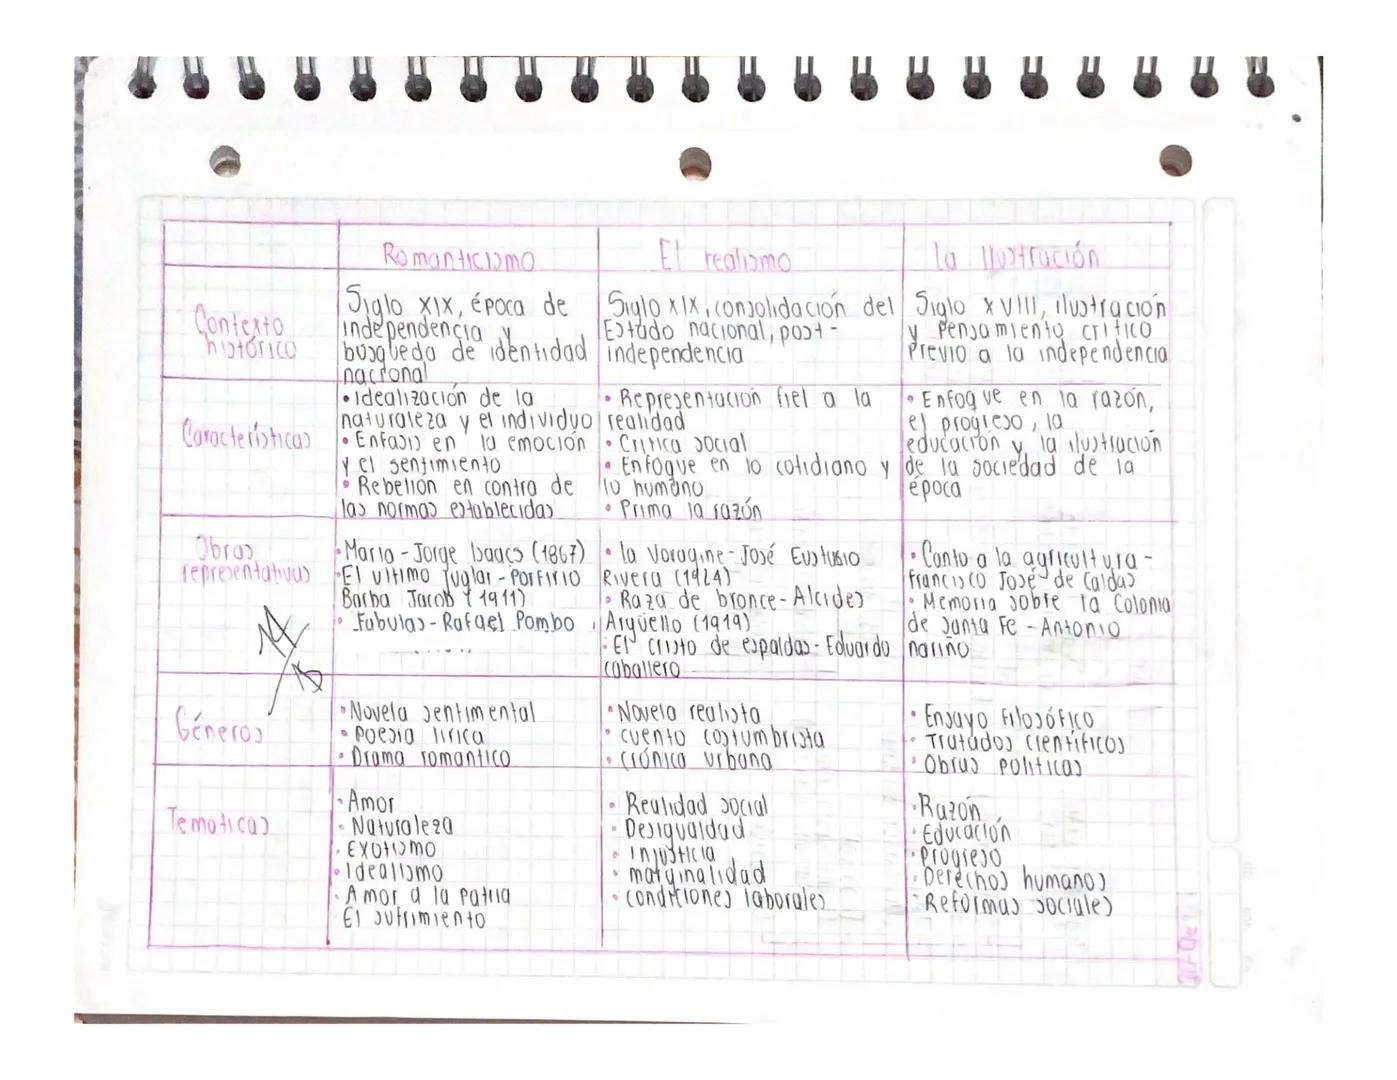 Romanticismo
El realismo
la Ilustración
Contexto
histórico
Siglo XIX, época de
independencia y
busqueda de identidad
nacional
Siglo XIX, consolidación del
Estado nacional, post-
independencia
Siglo XVIII, ilustración
y pensamiento critico
Previo a la independencia
Caracteristicas
• Idealización de la
naturaleza y el individuo
• Enfasis en la emoción
y el sentimiento
• Rebelion en contra de
las normas establecidas
• Representación fiel a la
realidad
• Critica social
• Enfoque en lo cotidiano y
lo humano
• Prima la razón
• Enfoque en la razón,
el progreso, la
educación y la ilustración
de la sociedad de la
época
Obras
representativas
• Maria - Jorge Isaacs (1867)
• El ultimo juglar - Porfirio
Barba Jacob (1911)
• Fabulas - Rafael Pombo
• la Voragine - José Eustasio
Rivera (1924)
• Raza de bronce - Alcides
Argüello (1919)
• El cristo de espaldas - Eduardo
caballero
• Canto a la agricultura -
Francisco José de Caldas
• Memoria sobre la Colonia
de Santa Fe - Antonio
nariño
Géneros
• Novela sentimental
• poesia lirica
• Drama romantico
• Novela realista
• cuento costumbrista
• crónica urbana
• Ensayo Filosófico
• Tratados cientificos
• Obras politicas
Tematicas
• Amor
• Naturaleza
• Exotismo
• Idealismo
• Amor a la patria
El sufrimiento
• Realidad social
• Desigualdad
• Injusticia
• marginalidad
• condiciones laborales
• Razón
• Educación
• progreso
• Derechos humanos
• Reformas sociales